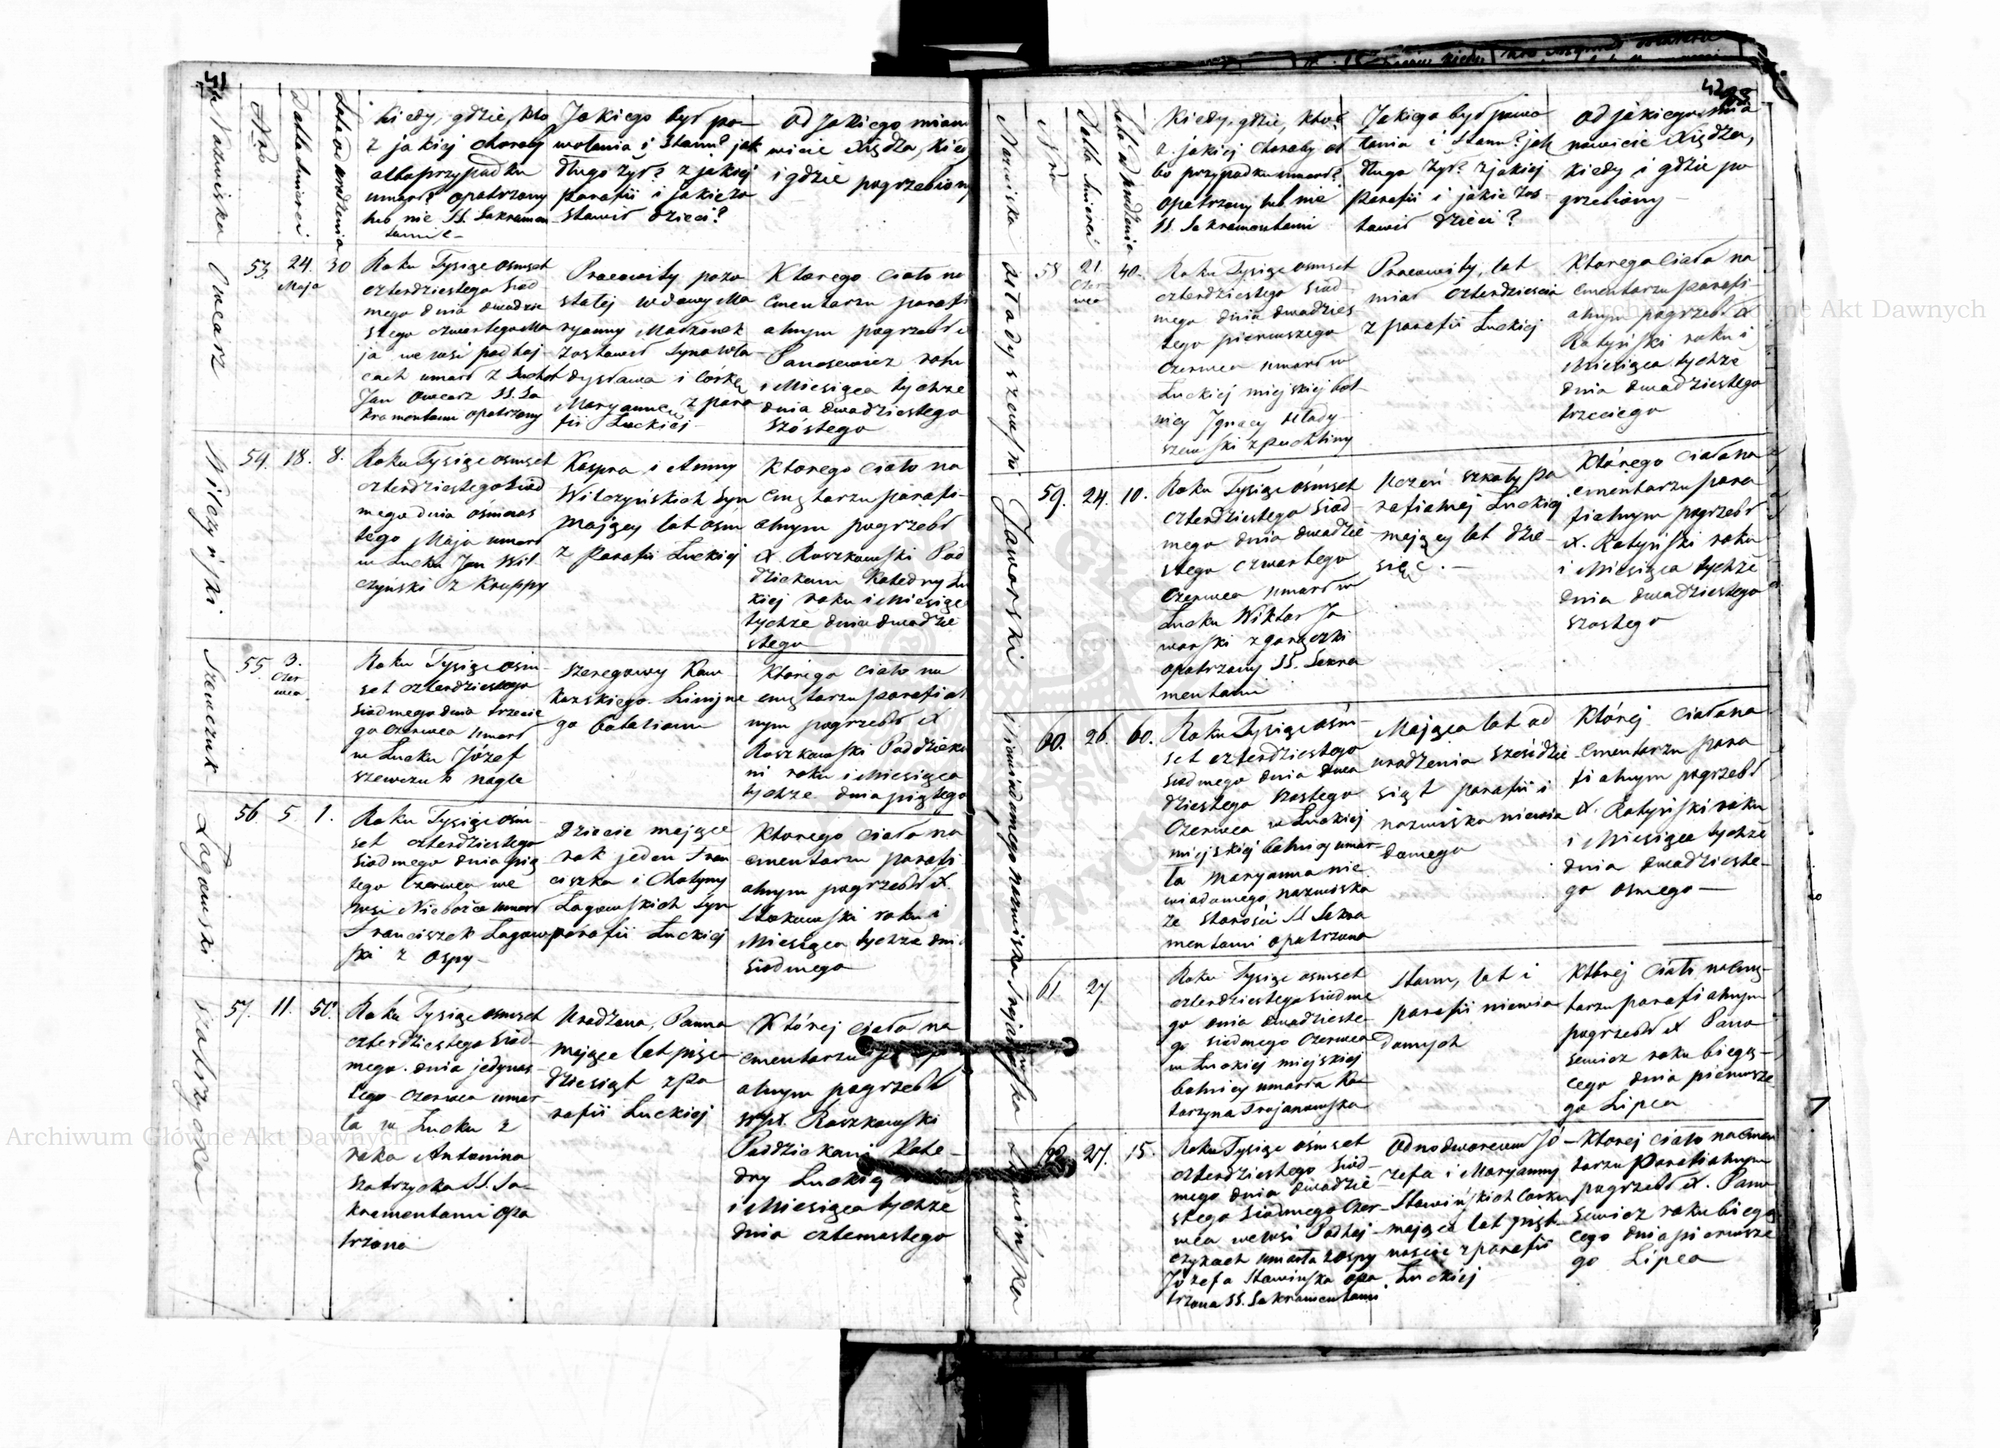 41
Nazwiska
Nro
Datta śmierci
Lata od urodzenia
Kiedy, gdzie, kto
z jakiej choroby
albo przypadku
umarł? opatrzony
lub nie SS. Sakramen
tami
Jakiego był po-
wołania i Stanu? jak
długo żył? z jakiej
parafii i jakie zo
stawił dzieci?
Od jakiego miano
wicie Xiędza, kiedy
i gdzie pogrzebiony
Owczarz
53.
24.
Maja
30
Roku Tysiąc osmset
czterdziestego siod
mego dnia dwadzie
stego czwartego Ma
ja we wsi podhaj-
cach umarł z Suchot
Jan Owczarz SS. Sa
kramentami opatrzony
Pracowity pozo
stałej wdowy Ma
ryanny Małżonek
zostawił syna Wła-
dysława i córkę
Maryannę z para
fii Łuckiej
Którego ciało na
cmentarzu parafi
alnym pogrzebł X.
Panasewicz roku
i Miesiąca tychże
dnia dwadziestego
szóstego
Wilczyński
54.
18.
8.
Roku Tysiąc osmset
czterdziestego siod
mego dnia ośmnas
tego Maja umarł
w Łucku Jan Wil
czyński z Kruppy
Kaspra i Anny
Wilczyńskich syn
mający lat osm
z parafii Łuckiej
Którego ciało na
cmętarzu parafi-
alnym pogrzebł
X. Roszkowski Pod
dziekani Katedry Łu
kiej roku i Miesiąca
tychże dnia dwadzie
stego
Szewczuk
55.
3.
Czer
wca
Roku Tysiąc ośm-
set czterdziestego
siodmego dnia trzecie
go Czerwca umarł
w Łucku Józef
Szewczuk nagle
Szeregowy Kau
kazskiego Linijne
go batalionu
Którego ciało na
cmętarzu parafial
nym pogrzebł X
Roszkowski Poddzieka
ni roku i Miesiąca
tychże dnia piątego
Łagowski
56.
5.
1.
Roku Tysiąc ośm-
set czterdziestego
siodmego dnia pią
tego Czerwca we
wsi umarł
Franciszek Łagow
ski z Ospy
Dziecie mające
rok jeden Fran
ciszka i
Łagowskich syn
parafii Łuckiej
Którego ciało na
cmentarzu parafi
alnym pogrzebł X.
roku i
Miesiąca tychże dnia
siodmego
57.
11.
50.
Roku Tysiąc osmset
czterdziestego siod-
mego dnia jedynas
tego czerwca umar
ła w Łucku z
raka Antonina
SS. Sa-
kramentami opa
trzona
Urodzona, Panna
mające lat pięć
dziesiąt z pa
rafii Łuckiej
Której ciało na
cmentarzu
alnym pogrzebł
X. Roszkowski
Poddziekani Kate-
dry Łuckiej
i Miesiąca tychże
dnia czternastego
42
Nazwiska
Nro
Datta śmierci
Lata od urodzenia
Kiedy, gdzie, kto?
z jakiej choroby al
bo przypadku umarł?
opatrzony lub nie
SS. Sakramentami
Jakiego był powo
łania i Stanu? jak
długo żył? z jakiej
Parafii i jakie zos-
tawił dzieci?
Od jakiego mia
nowicie Xiędza,
kiedy i gdzie po
grzebiony
Władyszewski
58
21
Czer-
wca
40.
Roku Tysiąc osmset
czterdziestego siod-
mego dnia dwadzies
tego pierwszego
Czerwca umarł w
Łuckiej miejskiej bol-
nicy Ignacy Włady-
szewski z puchliny
Pracowity, lat
miał czterdzieścia
z parafii Łuckiej
Którego ciało na
cmentarzu parafi
alnym pogrzebł X
Ratyński roku i
Miesiąca tychże
dnia dwadziestego
trzeciego
Jaworski
59.
24.
10.
Roku Tysiąc ośmset
czterdziestego siod-
mego dnia dwadzie
stego czwartego
Czerwca umarł w
Łucku Wiktor Ja
worski z gorączki
opatrzony SS. Sakra
mentami
Uczeń szkoły pa
rafialnej Łuckiej
mający lat dzie-
sięć.
Którego ciało na
cmentarzu para
fialnym pogrzebł
X. Ratyński roku
i Miesiąca tychże
dnia dwadziestego
szostego
Niewiadomego nazwiska
60.
26.
60.
Roku Tysiąc ośm-
set czterdziestego
siodmego dnia dwa
dziestego szostego
Czerwca w Łuckiej
miejskiej bolnicy umar-
ła Maryanna nie
wiadomego nazwiska
ze starości SS Sakra
mentami opatrzona
Mająca lat od
urodzenia sześćdzie
siąt parafii i
nazwiska niewia
domego
Której ciało na
cmentarzu para
fialnym pogrzebł
X. Ratyński roku
i Miesiąca tychże
dnia dwadzieste-
go osmego
Trojanowska
61
27
Roku Tysiąc osmset
czterdziestego siodme
go dnia dwadzieste-
go siodmego Czerwca
w Łuckiej miejskiej
bolnicy umarła Ka
tarzyna Trojanowska
Stanu, lat i
parafii niewia
domych
Której ciało na cmę-
tarzu parafialnym
pogrzebł X Pana
sewicz roku bieżą-
cego dnia pierwsze
go Lipca
62
27.
15.
Roku Tysiąc ośmset
czterdziestego siod-
mego dnia dwadzie
stego siodmego Czer-
wca we wsi Podhaj-
czykach umarła z ospy
Józefa Stawińska opa
trzona SS. Sakramentami
Odnodworcow Jó-
zefa i Maryanny
Stawińskich corka
mająca lat pięt-
naście z parafii
Łuckiej
Której ciało na cmen
tarzu Parafialnym
pogrzebł X. Pana
sewicz roku bieżą
cego dnia pierwsze
go Lipca
Archiwum Główne Akt Dawnych
Archiwum Główne Akt Dawnych